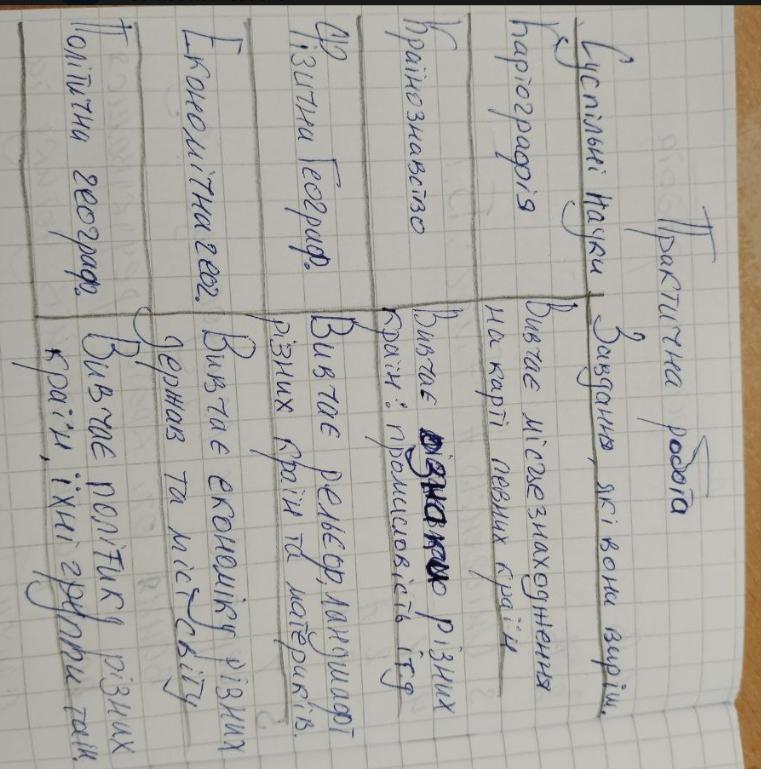 Практична робота
Суспільні науки
Завдання, які вони виріш.
Картографія
Вивчає місцезнаходження
на карті певних країн
Країнознавство
Вивчає різних
країн: промисловість ітд
Фізична Географ.
Вивчає рельєф, ландшафт
різних країн та материків.
Економітна геог.
Вивчає економіку різних
держав та міст світу
Політична географ.
Вивчає політику різних
країн, їхні групи та ін